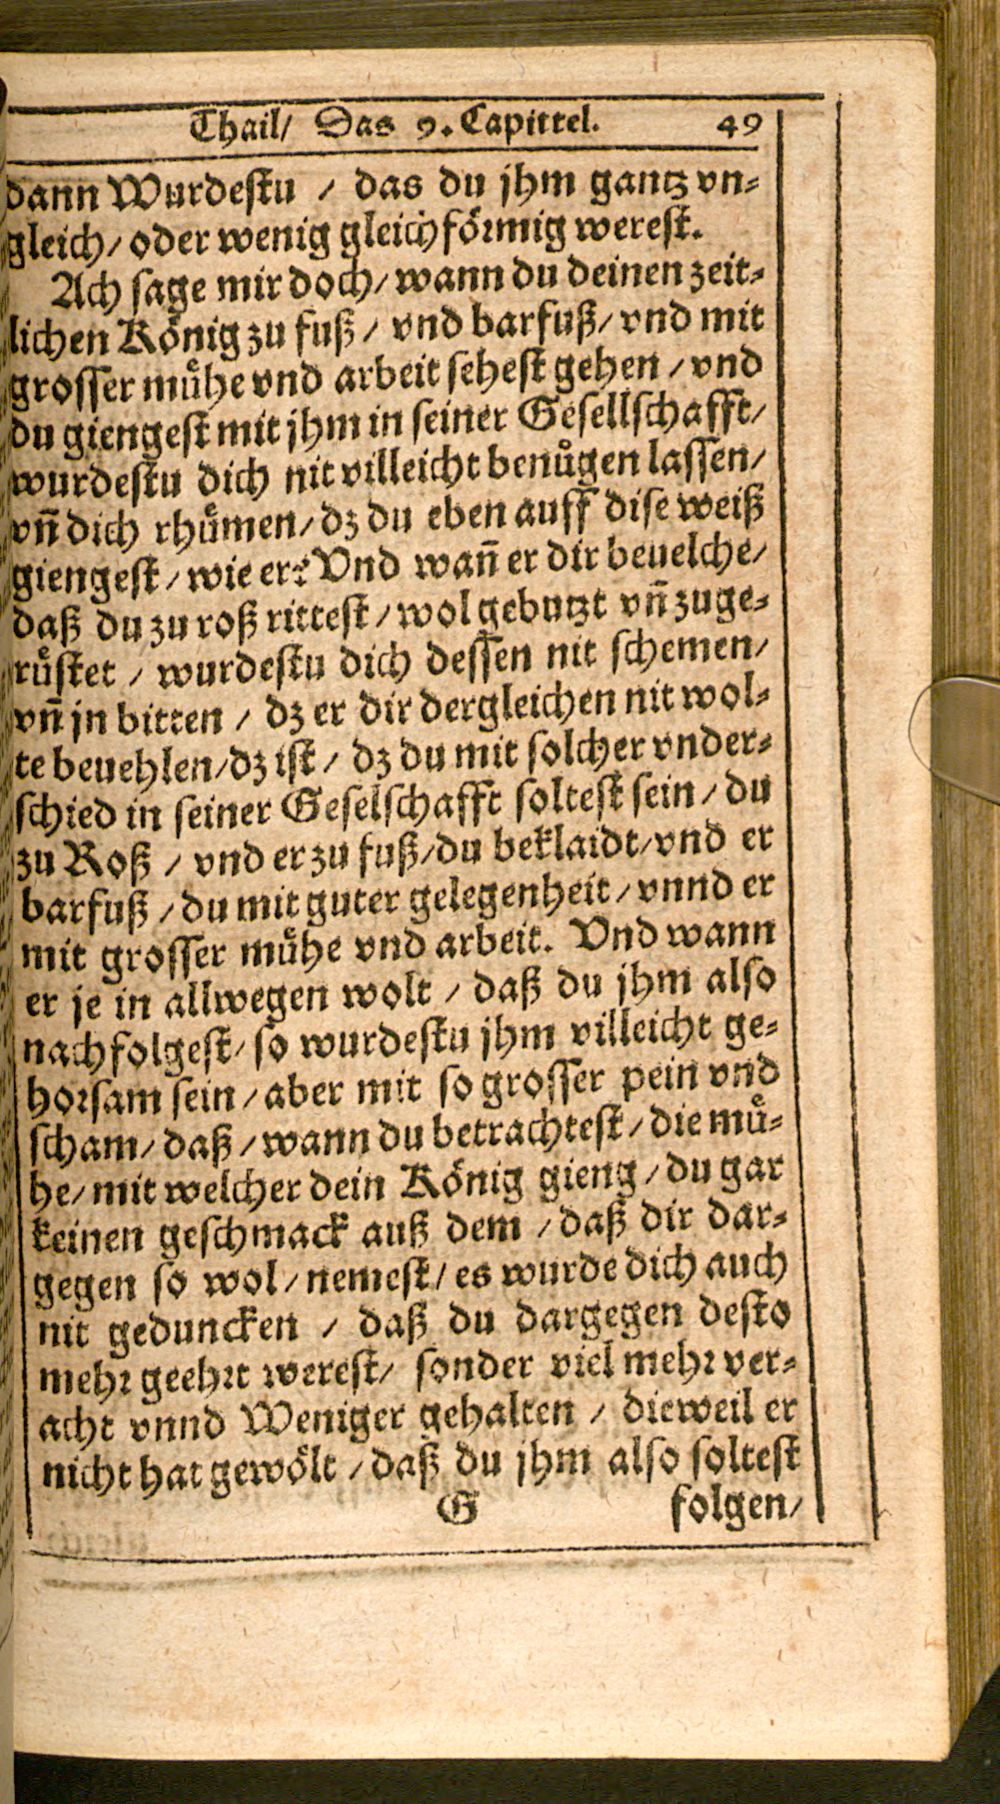 Thail/ Das 9. Capittel. 49
dann Wurdestu / das du jhm gantz vn⸗
gleich/ oder wenig gleichförmig werest.
Ach sage mir doch/ wann du deinen zeit⸗
lichen König zu fuß / vnd barfuß/ vnd mit
grosser mühe vnd arbeit sehest gehen / vnd
du giengest mit jhm in seiner Gesellschafft/
wurdestu dich nit villeicht benůgen lassen/
vn̄ dich rhümen/ dz du eben auff dise weiß
giengest / wie er? Vnd wan̄ er dir beuelche/
daß du zu roß rittest / wol gebutzt vn̄ zuge⸗
rüstet / wurdestu dich dessen nit schemen/
vn̄ jn bitten / dz er dir dergleichen nit wol⸗
te beuehlen/ dz ist / dz du mit solcher vnder⸗
schied in seiner Geselschafft soltest sein / du
zu Roß / vnd er zu fuß/ du beklaidt/ vnd er
barfuß / du mit guter gelegenheit / vnnd er
mit grosser mühe vnd arbeit. Vnd wann
er je in allwegen wolt / daß du jhm also
nachfolgest/ so wurdestu jhm villeicht ge⸗
horsam sein / aber mit so grosser pein vnd
scham/ daß / wann du betrachtest / die mü⸗
he/ mit welcher dein König gieng / du gar
keinen geschmack auß dem / daß dir dar⸗
gegen so wol / nemest/ es wurde dich auch
nit geduncken / daß du dargegen desto
mehr geehrt werest/ sonder viel mehr ver⸗
acht vnnd Weniger gehalten / dieweil er
nicht hat gewölt / daß du jhm also soltest
G folgen/